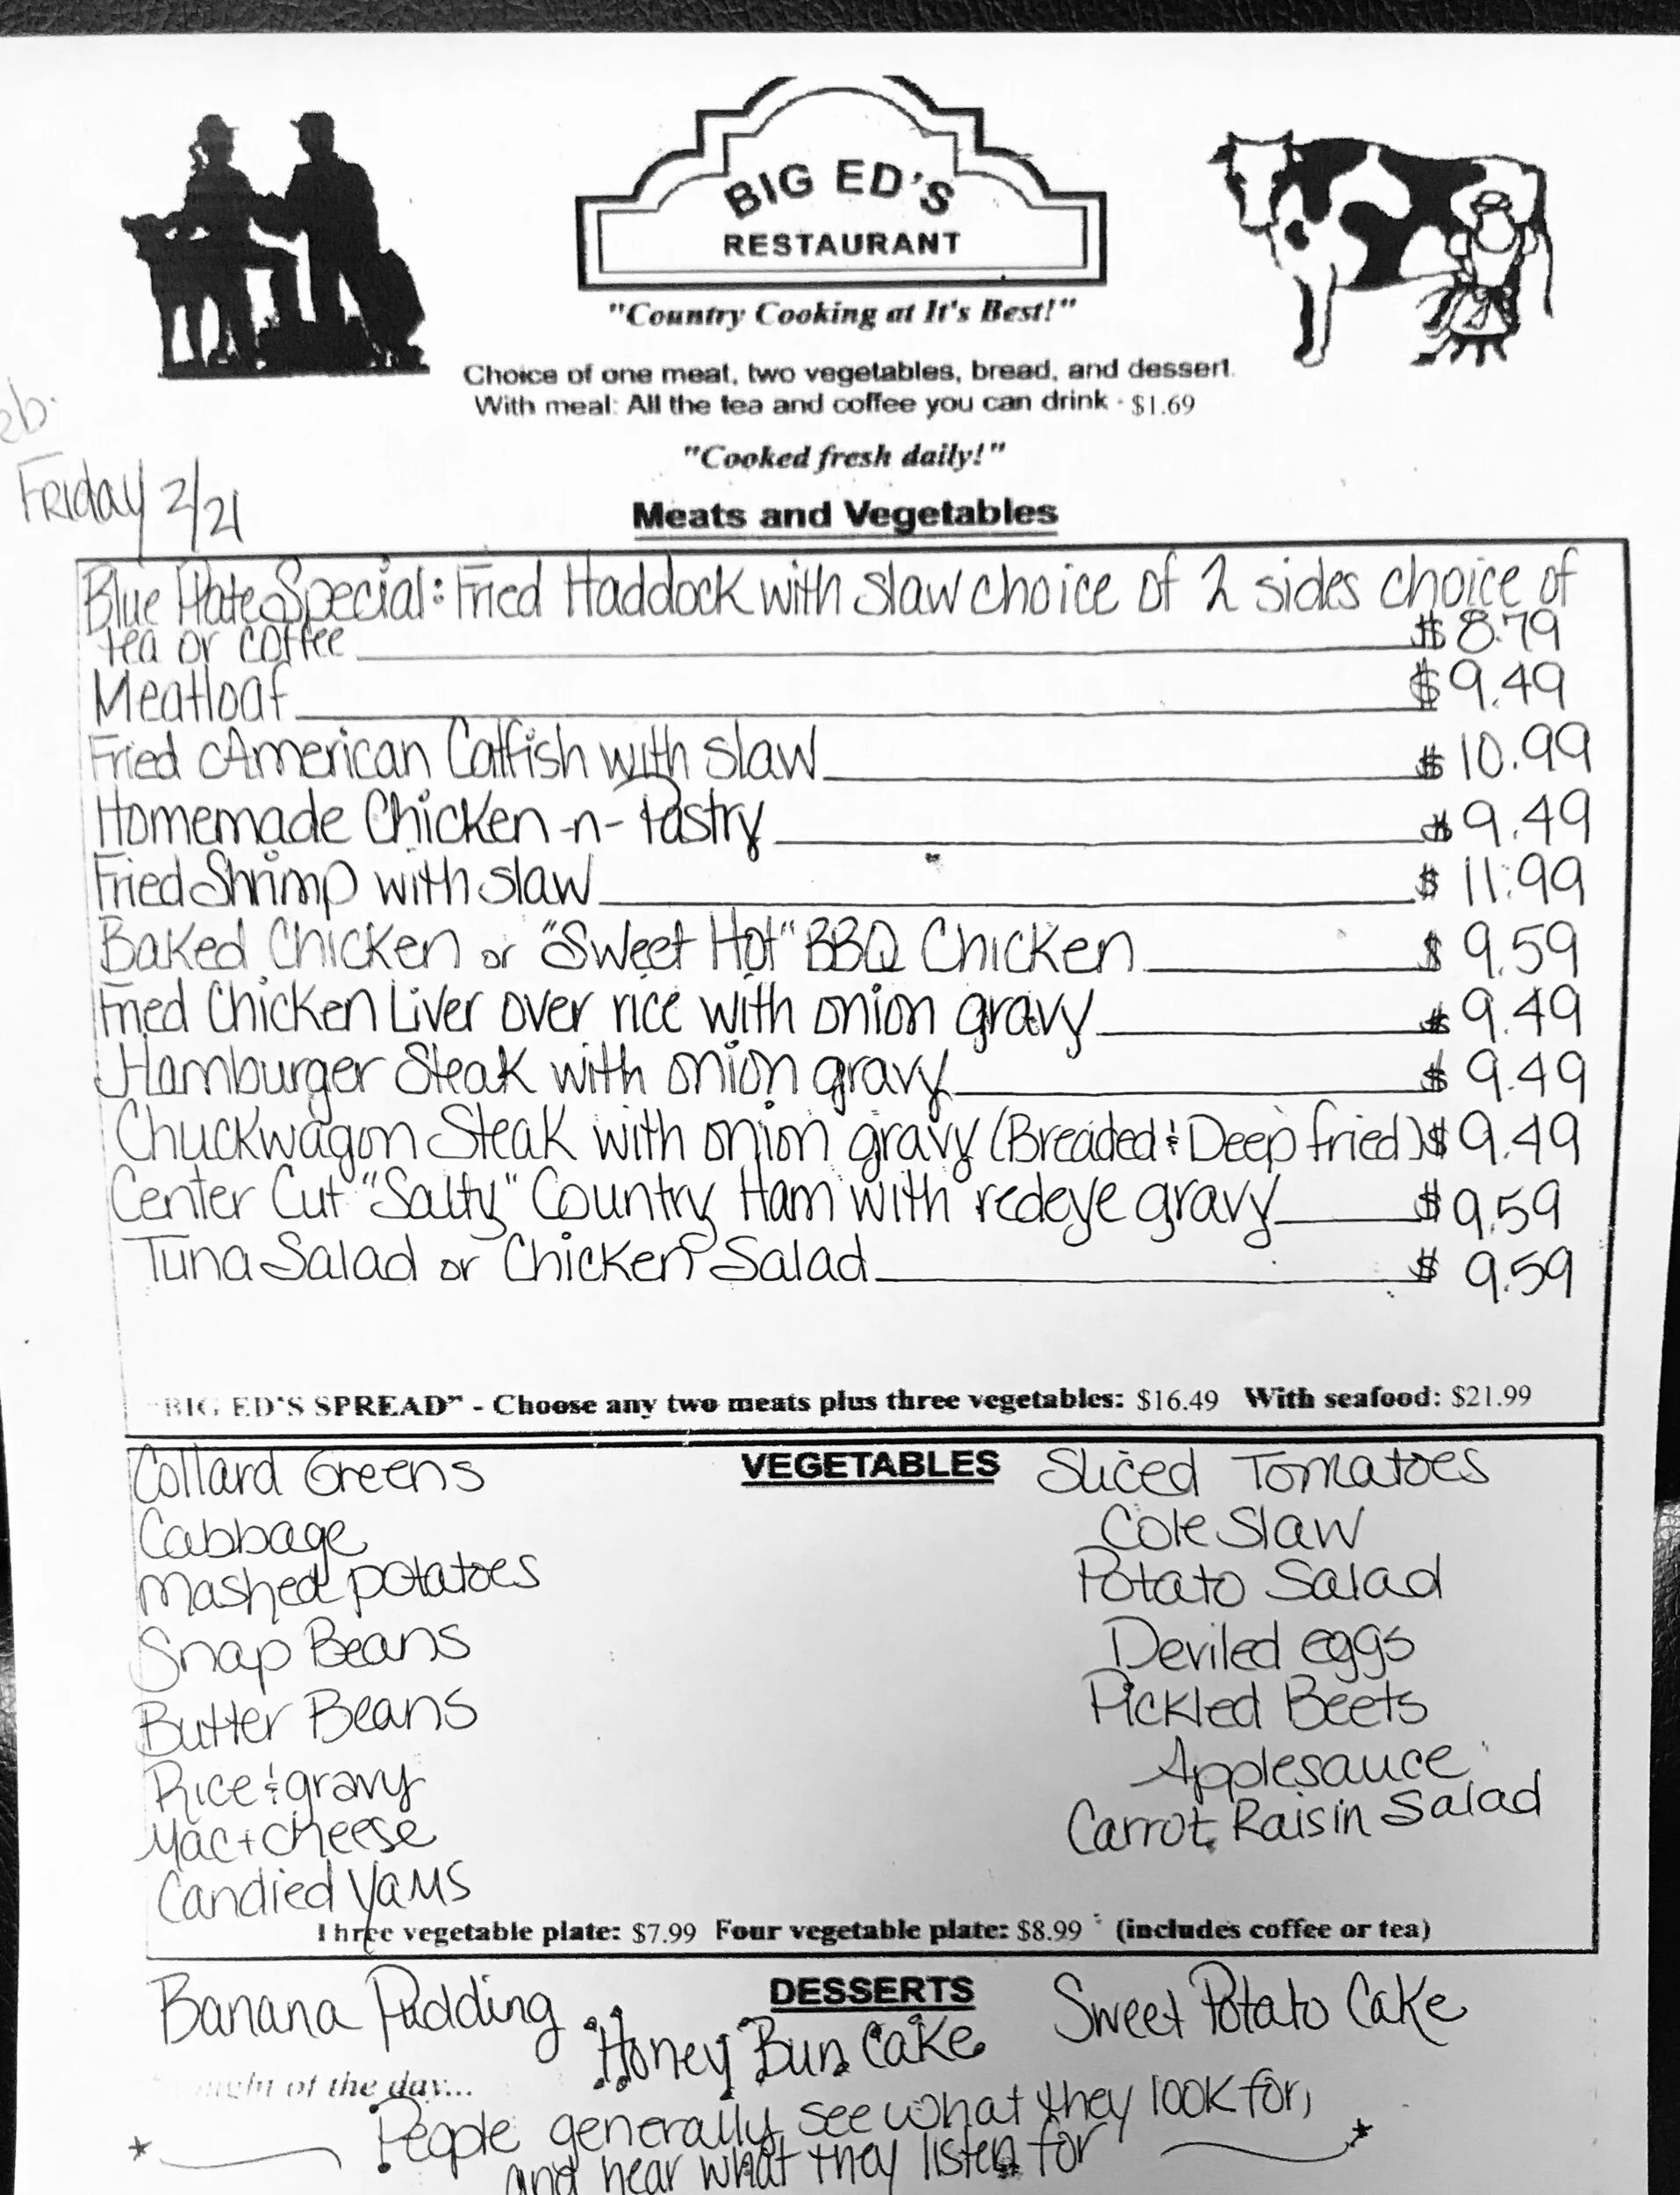 BIG ED'S
RESTAURANT
"Country Cooking at It's Best!"
Choice of one meat, two vegetables, bread, and dessert.
With meal: All the tea and coffee you can drink - $1.69
"Cooked fresh daily!"
Friday 2/21
Meats and Vegetables
Blue Plate Special: Fried Haddock with slaw choice of 2 sides choice of
tea or coffee $8.79
Meatloaf $9.49
Fried American Catfish with slaw $10.99
Homemade Chicken-n-Pastry $9.49
Fried Shrimp with slaw $11.99
Baked Chicken or "Sweet Hot" BBQ Chicken $9.59
Fried Chicken Liver over rice with onion gravy $9.49
Hamburger Steak with onion gravy $9.49
Chuckwagon Steak with onion gravy (Breaded & Deep fried) $9.49
Center Cut "Salty" Country Ham with redeye gravy $9.59
Tuna Salad or Chicken Salad $9.59
"BIG ED'S SPREAD" - Choose any two meats plus three vegetables: $16.49 With seafood: $21.99
VEGETABLES
Collard Greens
Cabbage
Mashed potatoes
Snap Beans
Butter Beans
Rice & gravy
Mac + cheese
Candied Yams
Sliced Tomatoes
Cole Slaw
Potato Salad
Deviled eggs
Pickled Beets
Applesauce
Carrot Raisin Salad
Three vegetable plate: $7.99 Four vegetable plate: $8.99 (includes coffee or tea)
DESSERTS
Banana Pudding
Honey Bun Cake
Sweet Potato Cake
of the day...
People generally see what they look for,
and hear what they listen for